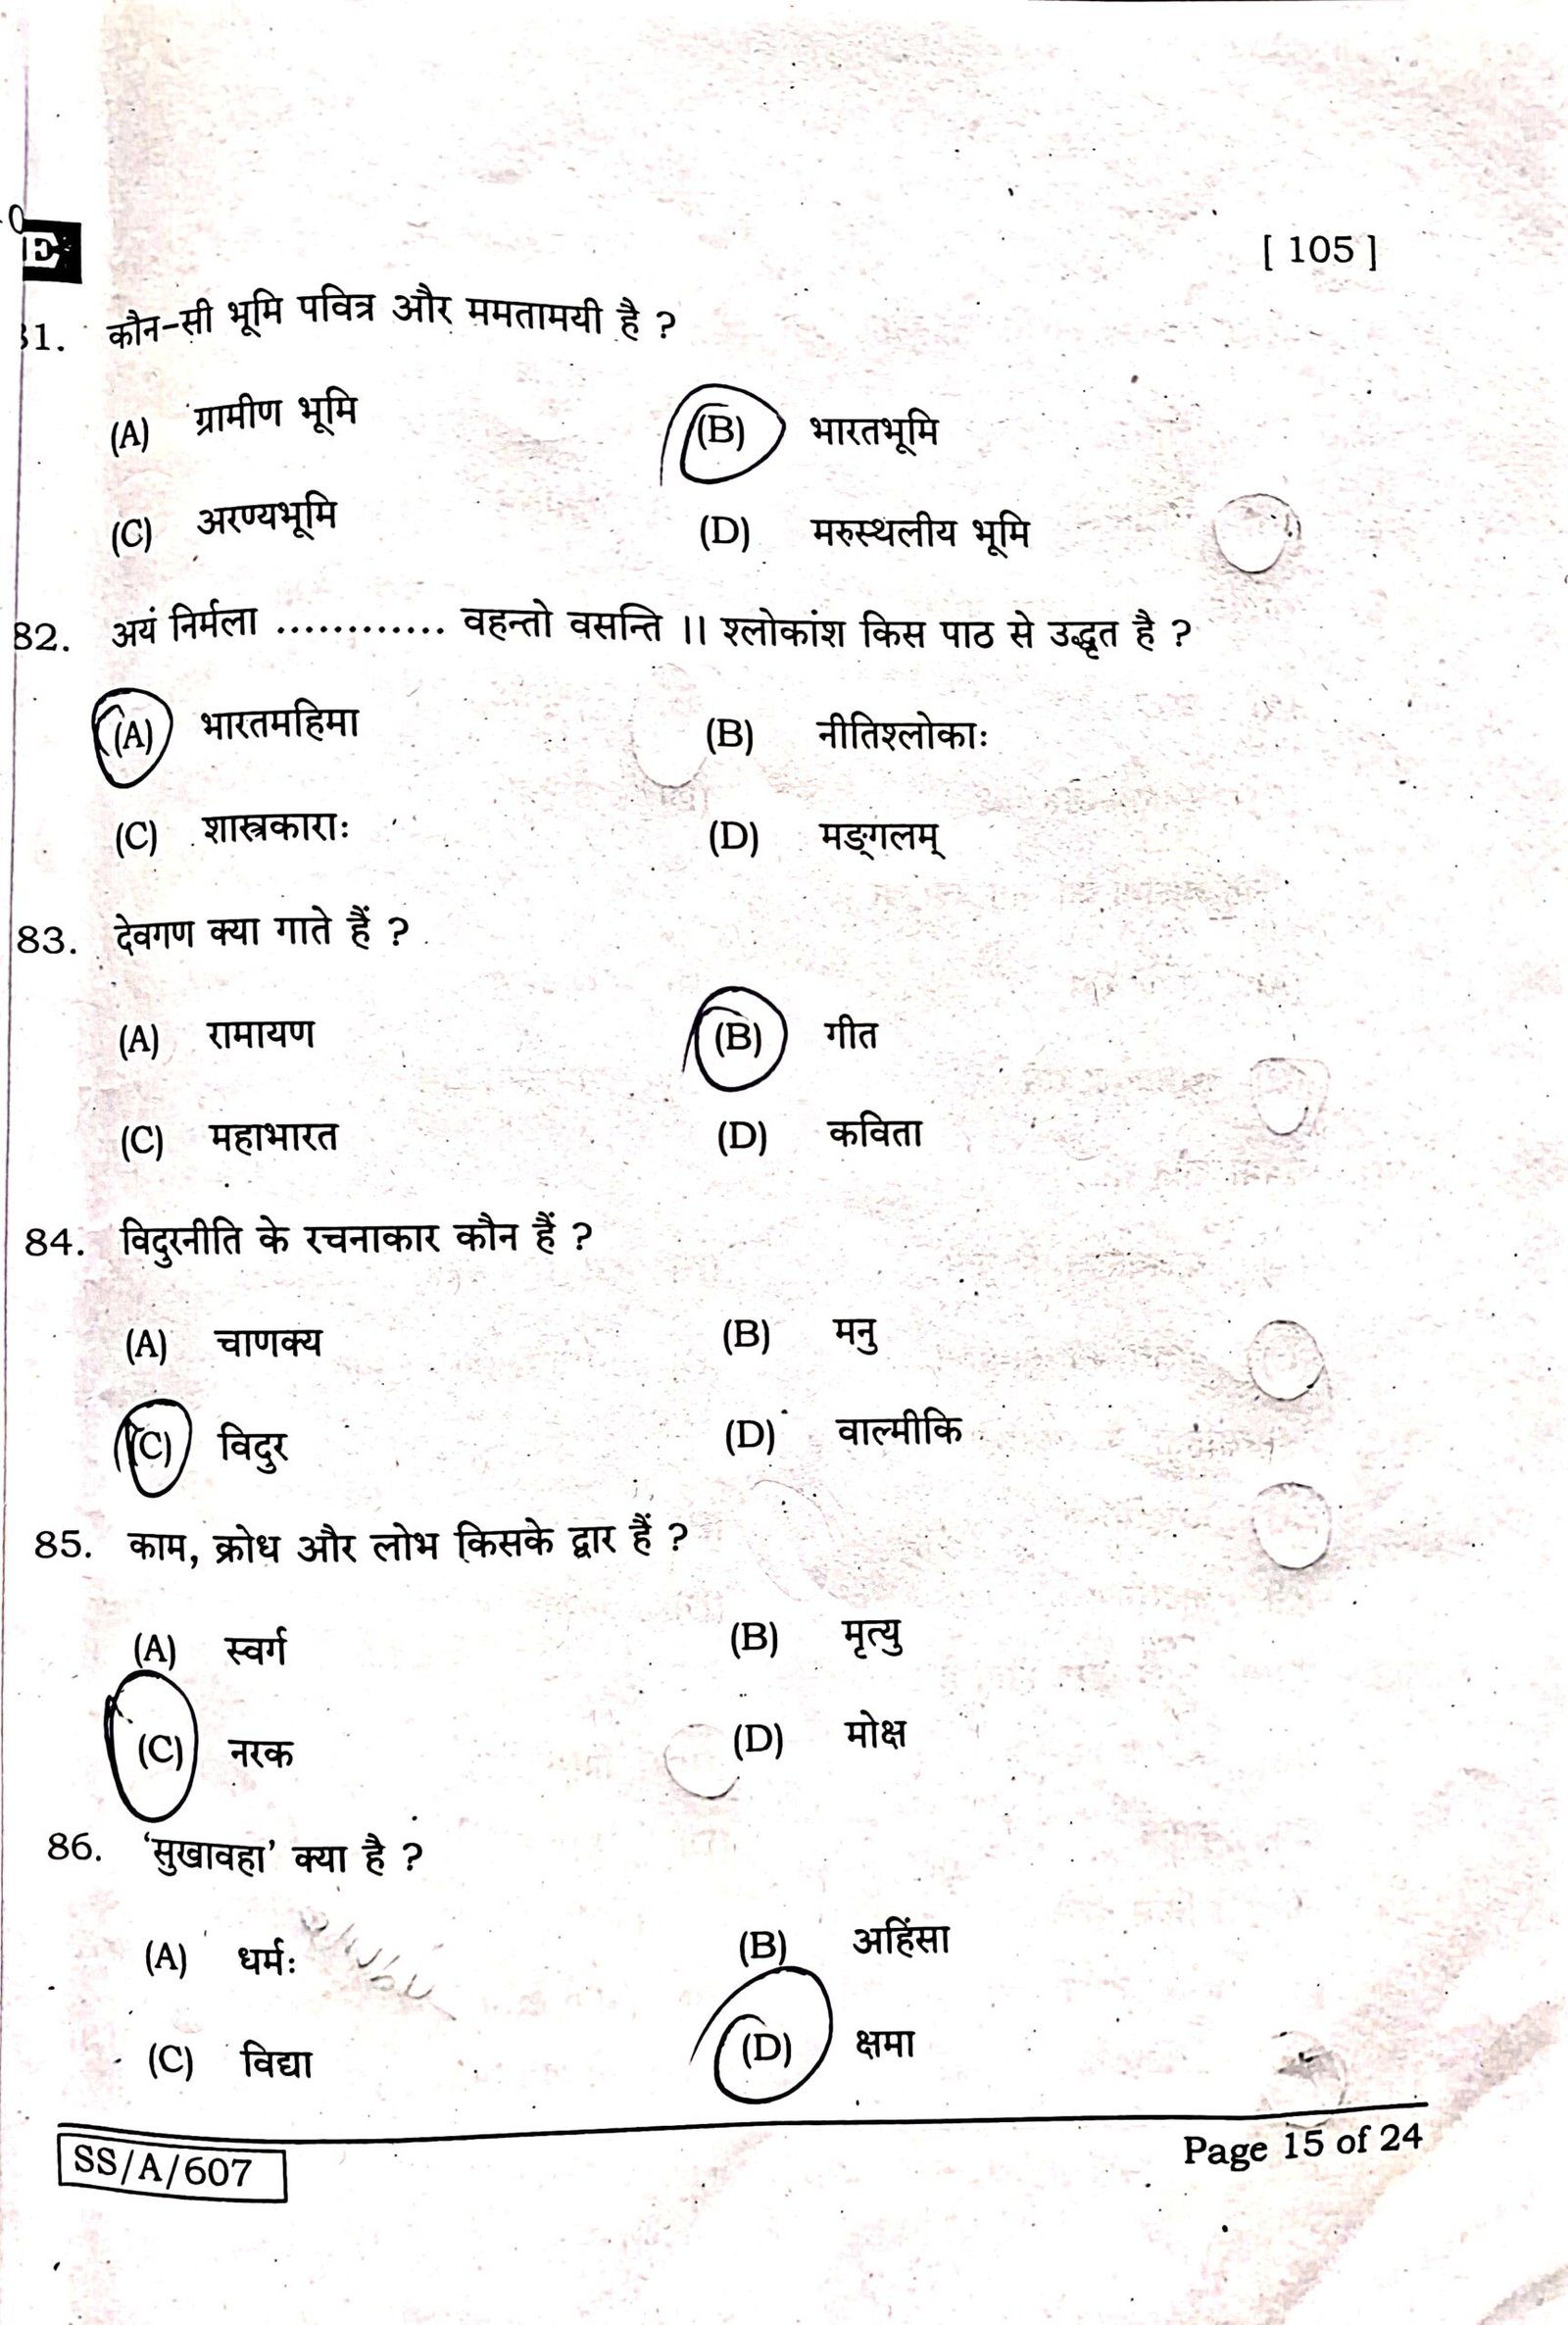 E
[ 105 ]
81. कौन-सी भूमि पवित्र और ममतामयी है ?
(A) ग्रामीण भूमि (B) भारतभूमि
(C) अरण्यभूमि (D) मरुस्थलीय भूमि
82. अयं निर्मला ............ वहन्तो वसन्ति ।। श्लोकांश किस पाठ से उद्धृत है ?
(A) भारतमहिमा (B) नीतिश्लोकाः
(C) शास्त्रकाराः (D) मङ्गलम्
83. देवगण क्या गाते हैं ?
(A) रामायण (B) गीत
(C) महाभारत (D) कविता
84. विदुरनीति के रचनाकार कौन हैं ?
(A) चाणक्य (B) मनु
(C) विदुर (D) वाल्मीकि
85. काम, क्रोध और लोभ किसके द्वार हैं ?
(A) स्वर्ग (B) मृत्यु
(C) नरक (D) मोक्ष
86. ‘सुखावहा’ क्या है ?
(A) धर्मः (B) अहिंसा
(C) विद्या (D) क्षमा
SS/A/607
Page 15 of 24